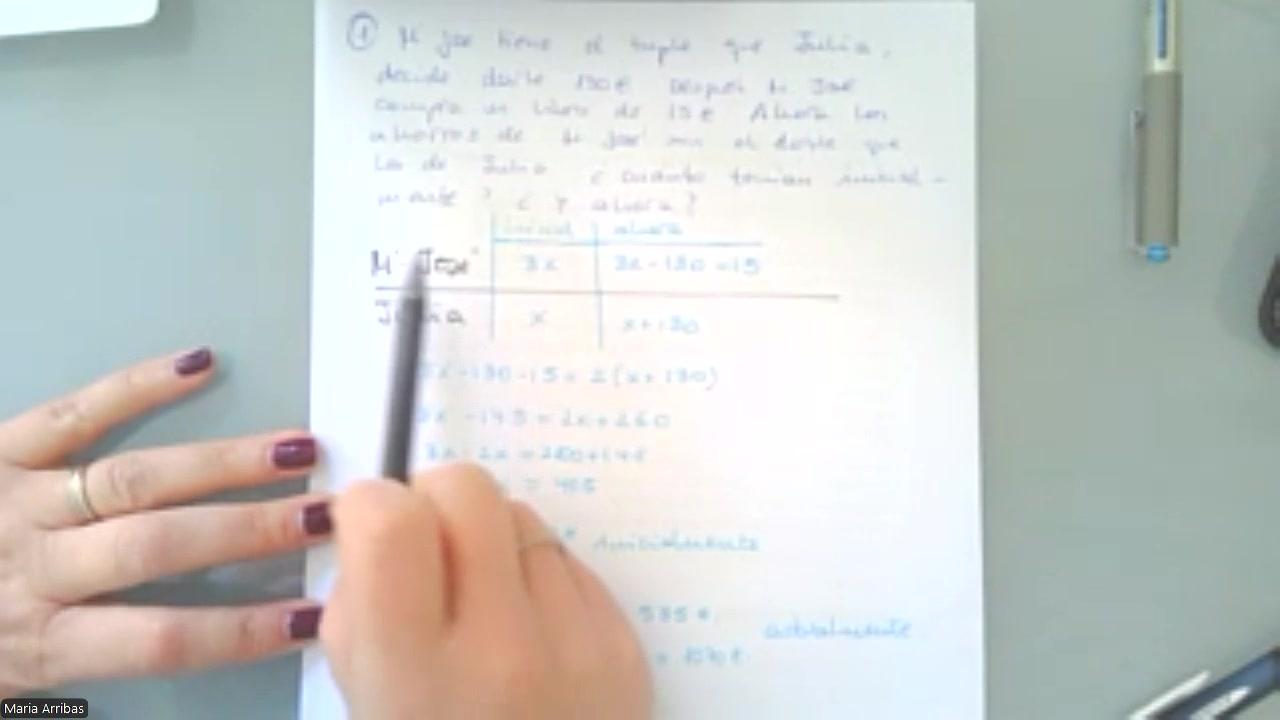 ① Mª José tiene el triple que Julia,
decide darle 130€ Después Mª José
compra un libro de 15€ Ahora los
ahorros de Mª José son el doble que
los de Julia ¿Cuánto tenían inicial-
mente? ¿Y ahora?
inicial ahora
Mª José 3x 3x-130-15
Julia x x+130
3x-130-15=2(x+130)
3x-145=2x+260
3x-2x=260+145
= 405
inicialmente
535€
actualmente
= 1070€
Maria Arribas